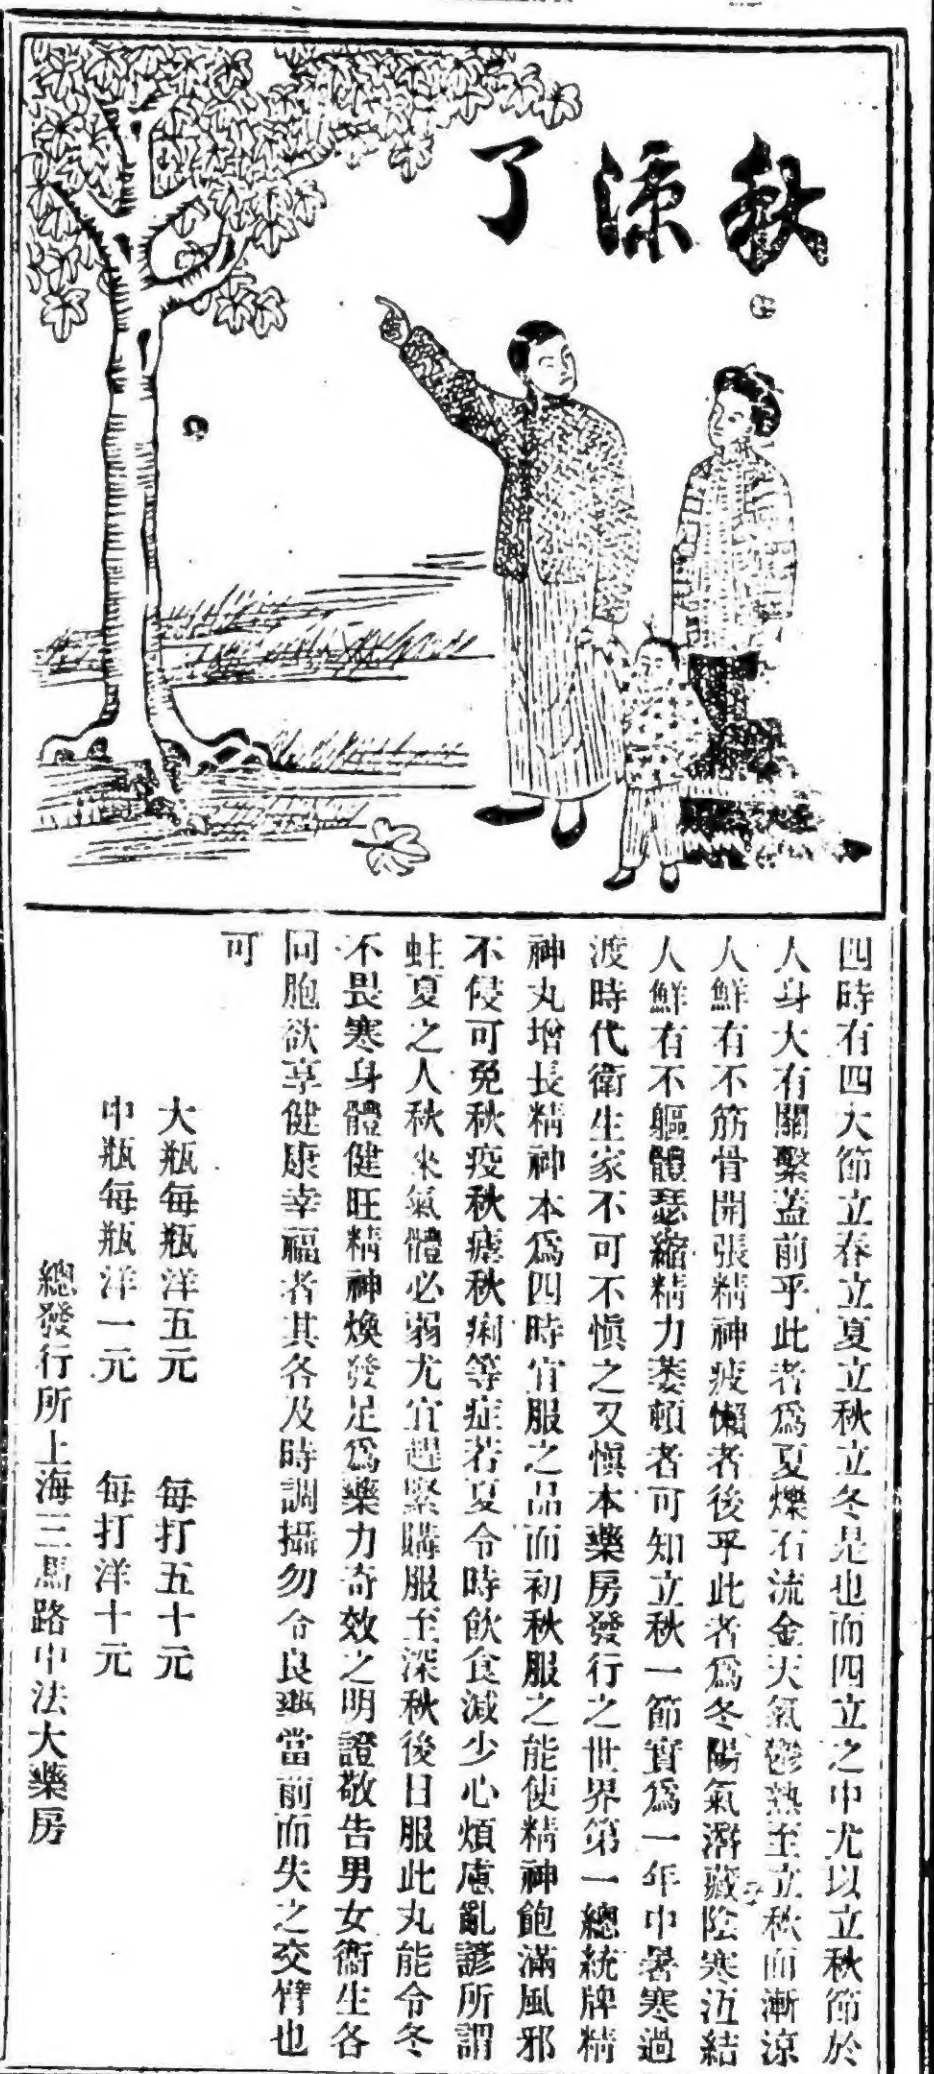 秋涼了
四時有四大節立春立夏立秋立冬是也而四立之中尤以立秋節於
人身大有關繫蓋前乎此者爲夏爍石流金天氣鬱熱至立秋而漸涼
人鮮有不筋骨開張精神疲懶者後乎此者爲冬陽氣潛藏陰寒沍結
人鮮有不軀體瑟縮精力萎頓者可知立秋一節實爲一年中暑寒過
渡時代衛生家不可不愼之又愼本藥房發行之世界第一總統牌精
神丸增長精神本爲四時宜服之品而初秋服之能使精神飽滿風邪
不侵可免秋疫秋瘧秋痢等症若夏令時飲食減少心煩慮亂諺所謂
蛀夏之人秋來氣體必弱尤宜趕緊購服至深秋後日服此丸能令冬
不畏寒身體健旺精神煥發足爲藥力奇效之明證敬告男女衞生各
同胞欲享健康幸福者其各及時調攝勿令良藥當前而失之交臂也
可
大瓶每瓶洋五元　每打五十元
中瓶每瓶洋一元　每打洋十元
總發行所上海三馬路中法大藥房